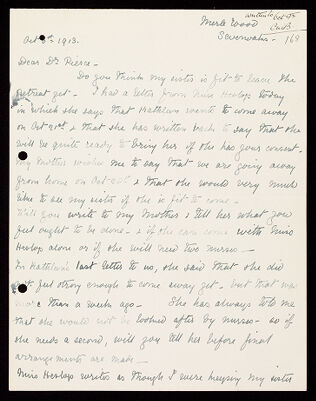 Merle Wood
Sevenoaks - 169
Oct 8th 1913.
Dear Dr Pierce -
Do you think my sister is fit to leave the
Retreat yet - I had a letter from Miss Heslop today
in which she says that Kathleen wants to come away
on Oct 20th & that she has written back to say that she
will be quite ready to bring her if she has your consent.
My Mother wishes me to say that we are going away
from home on Oct 20th & that she would very much
like to see my sister if she is fit to come -
Will you write to my Mother & tell her what you
feel ought to be done - & if she can come with Miss
Heslop alone or if she will need two nurses -
In Kathleen's last letter to us, she said that she did
not feel strong enough to come away yet - but that was
more than a week ago - She has always told me
that she would not be looked after by nurses - so if
she needs a second, will you tell her before final
arrangements are made -
Miss Heslop writes as though I were keeping my sister